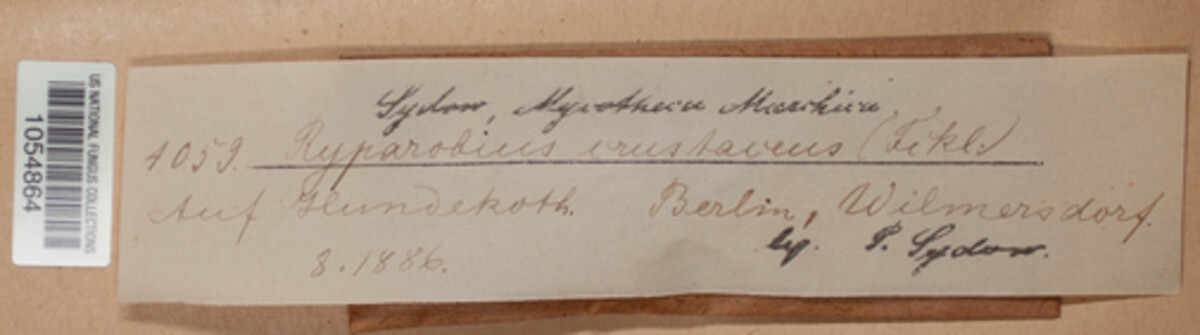 Sydow, Mycotheca Marchica.
1059. Ryparobius crustaceus (Fckl.)
Auf Hundekoth. Berlin, Wilmersdorf.
8.1886. leg. P. Sydow.
US NATIONAL FUNGUS COLLECTIONS
1054864